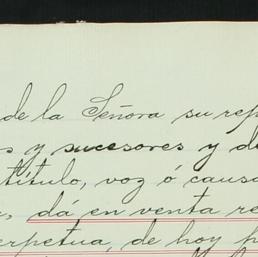 de la Señora su rep
s y sucesores y de
título, voz ó causa
, dá en venta re
erpetua, de hoy p